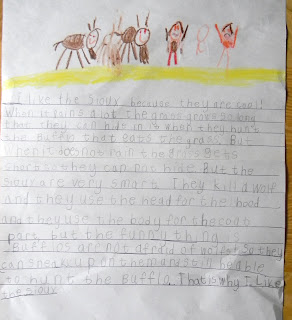 I like the Sioux because they are cool!
When it rains a lot the grass grows so long
that they can hide in it when they hunt
the bufflo that eats the grass. But
when it does not rain the grass gets
short they can not hide. But the
sioux are very smart. They kill a wolf
and they use the head for the hood
and they use the body for the coat
part but the funny thing is
Bufflos are not afraid of wolfs! So they
can sneak up on them and still be able
to hunt the bufflo. That is why I like
the sioux.